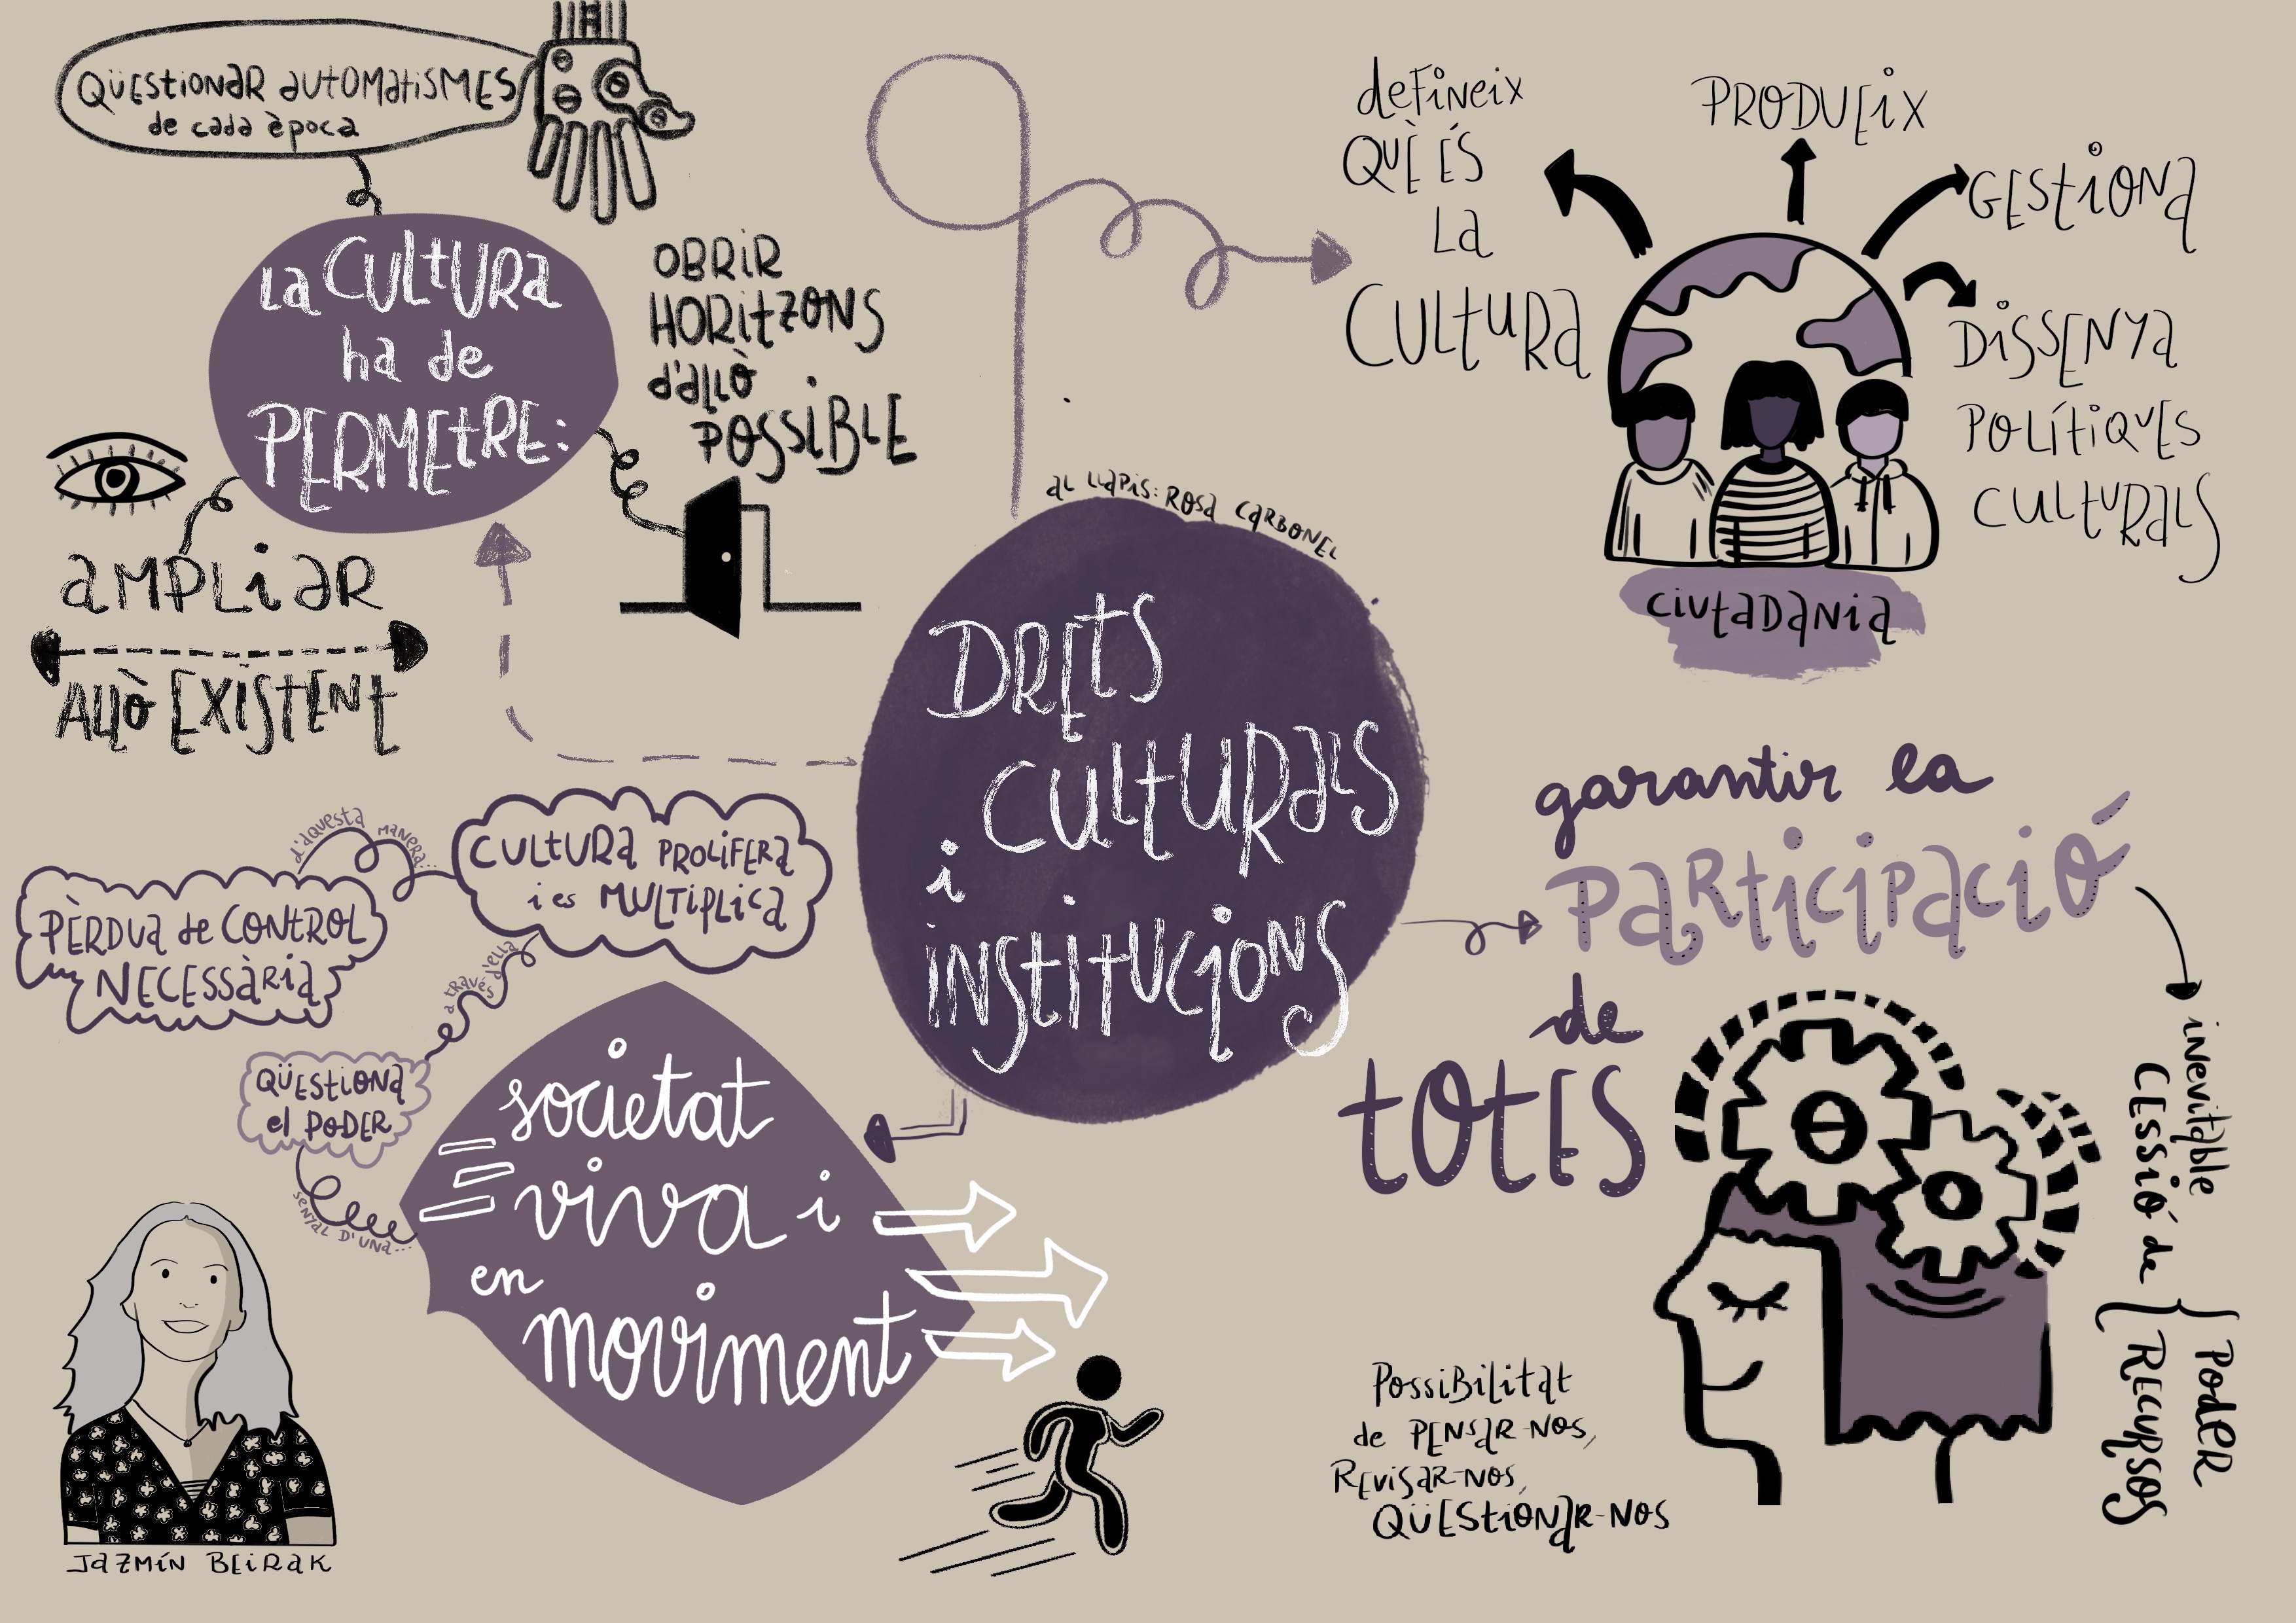 QÜESTIONAR AUTOMATISMES
de cada època
La CULTURA
ha de
PERMETRE:
OBRIR
HORITZONS
d'allò
POSSIBLE
AMPLIAR
ALLÒ EXISTENT
defineix
QUÈ ÉS
La
CULTURA
PRODUEIX
GESTIONA
DISSENYA
POLÍTIQUES
CULTURALS
CIUTADANIA
AL LLAPIS: ROSA CARBONEL
DRETS
CULTURALS
i
INSTITUCIONS
garantir la
PARTICIPACIÓ
de
TOTES
inevitable
CESSIÓ de
PODER
RECURSOS
POSSIBILITAT
de PENSAR-NOS,
REVISAR-NOS,
QÜESTIONAR-NOS
CULTURA PROLIFERA
i es MULTIPLICA
d'aquesta manera...
PÈRDUA de CONTROL
NECESSÀRIA
a través d'ella
QÜESTIONA
el PODER
SENYAL D'UNA...
societat
viva i
en
moviment
JAZMÍN BEIRAK